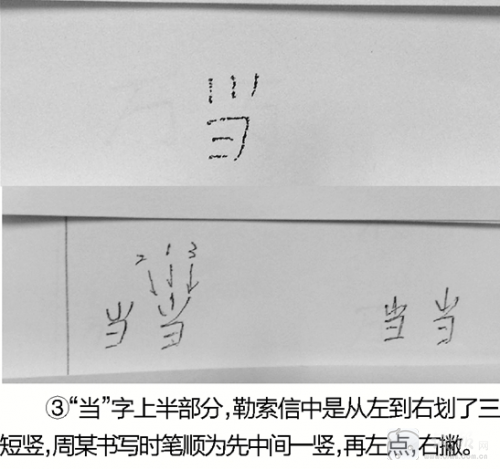 当
2 1 3
当 当 当 当
③“当”字上半部分,勒索信中是从左到右划了三
短竖,周某书写时笔顺为先中间一竖,再左点,右撇。